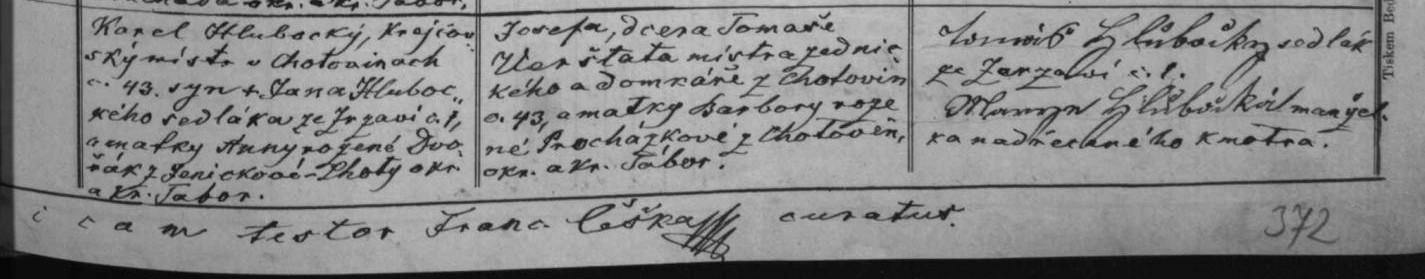 okr. a kr. Tábor,
Karel Hlubocký, Krejčov
ský mistr v Chotovinách
č. 43. syn + Jana Hluboc„
kého sedláka ze Zrzaví č. 1,
a matky Anny rozené Dvo
řák z Jeníckové-Lhoty okr.
a kr. Tábor.
Josefa, dcera Tomaše
Veršťata mistra zednic
kého a domkáře z Chotovin
č. 43, a matky Barbory roze
né Procházkové z Chotovin,
okr. a kr. Tábor.
Hlubocký sedlák
ze Zarzaví č. 1.
Hlubocká manžel
ka nadřečeného kmotra.
testor Franc. Češka curatus.
372
Tiskem Bed